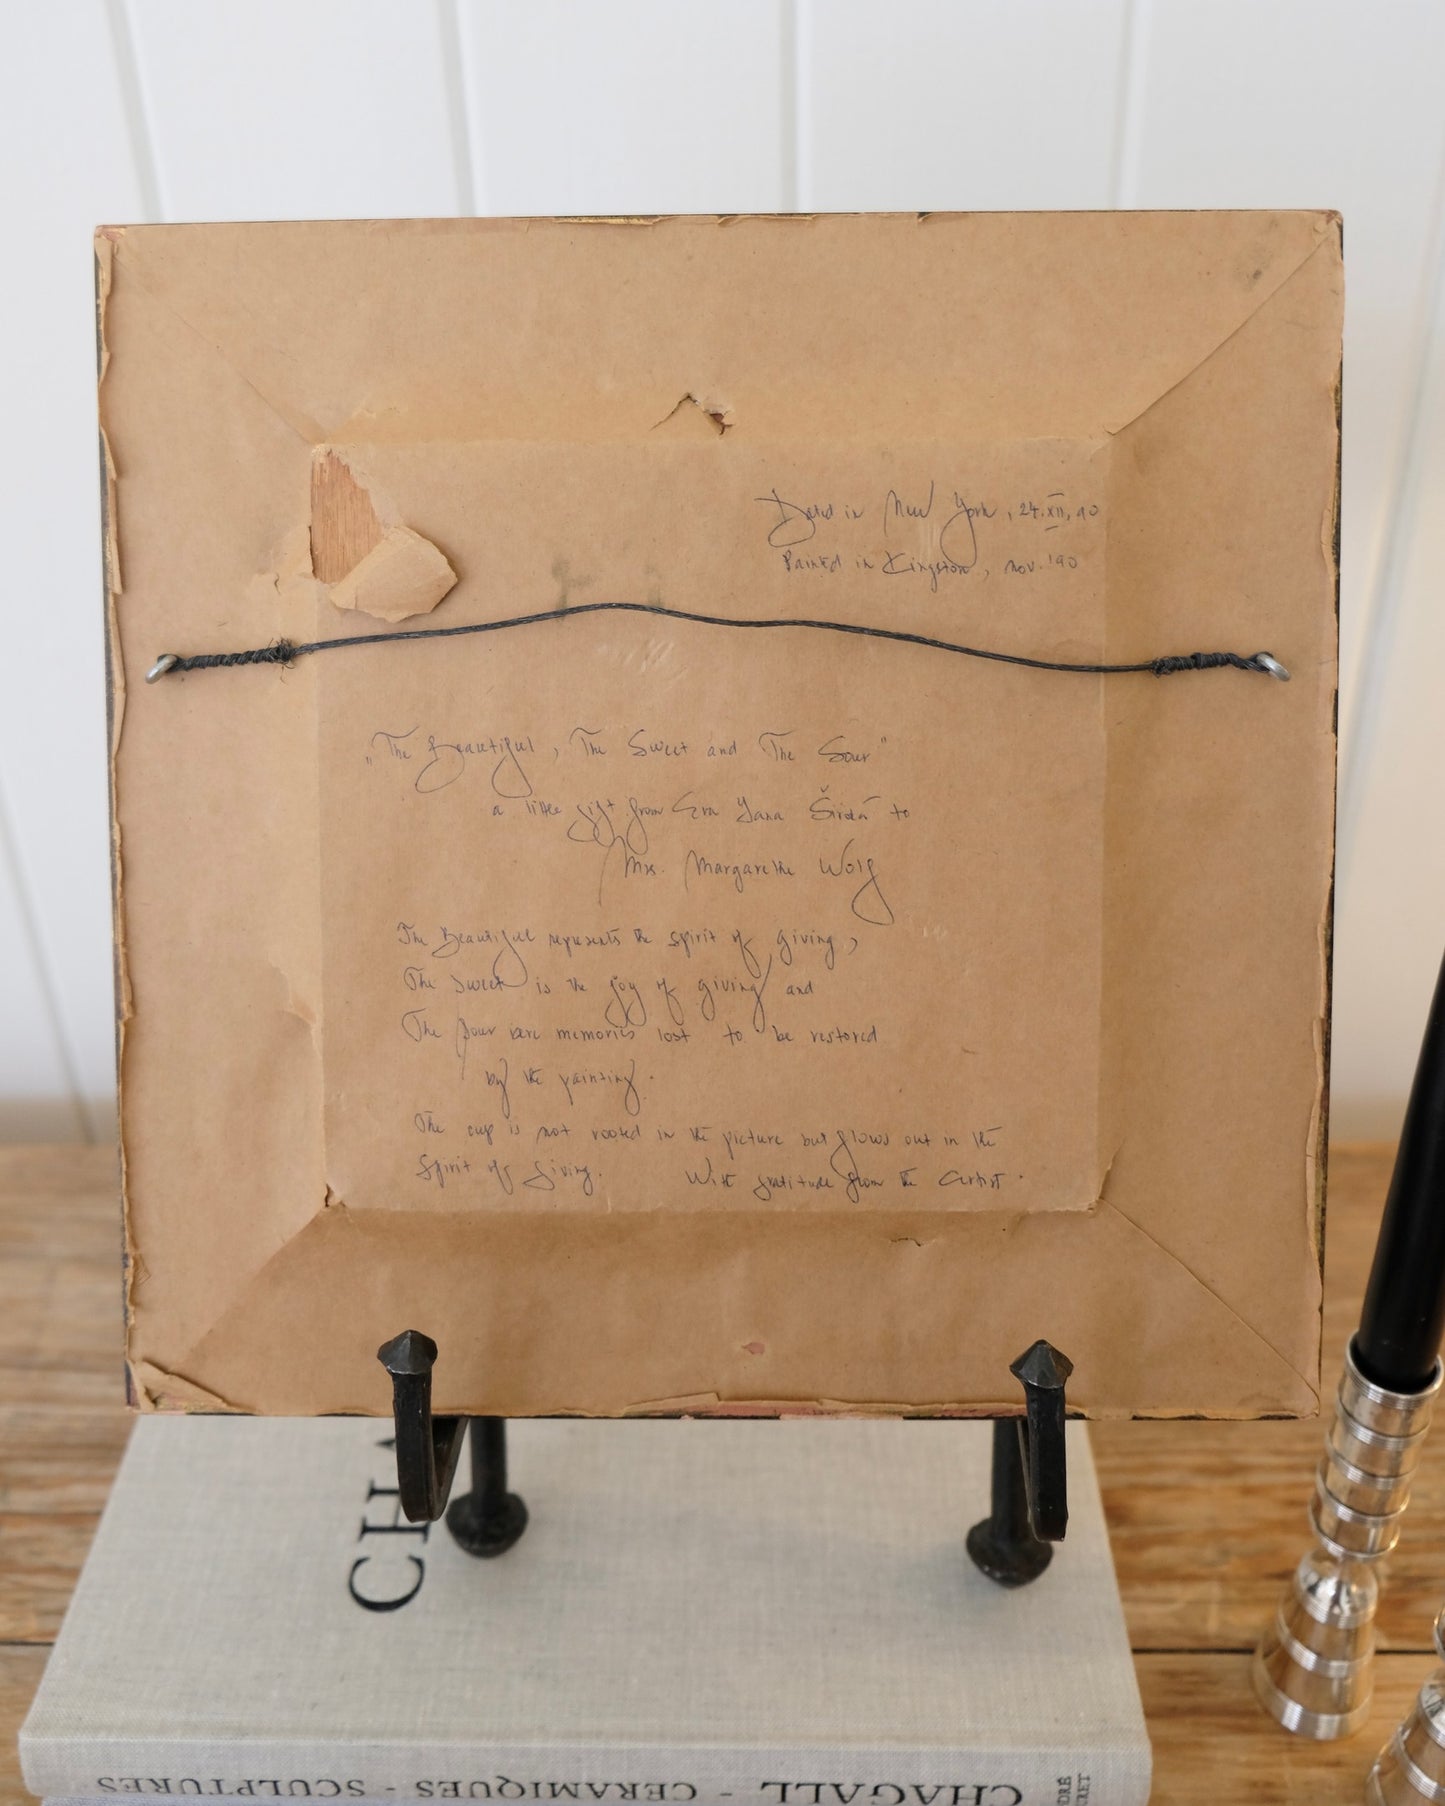 Dated in New York, 24.XII,90
Painted in Kingston, nov. '90
„The Beautiful, The Sweet and The Sour"
a little gift from Eva Yana to
Mrs. Margarethe Wolf
The Beautiful represents the spirit of giving,
The Sweet is the joy of giving and
The Sour are memories lost to be restored
by the painting.
The cup is not rooted in the picture but flows out in the
Spirit of Giving. With gratitude from the Artist.
CHA
CHAGALL - CERAMIQUES - SCULPTURES